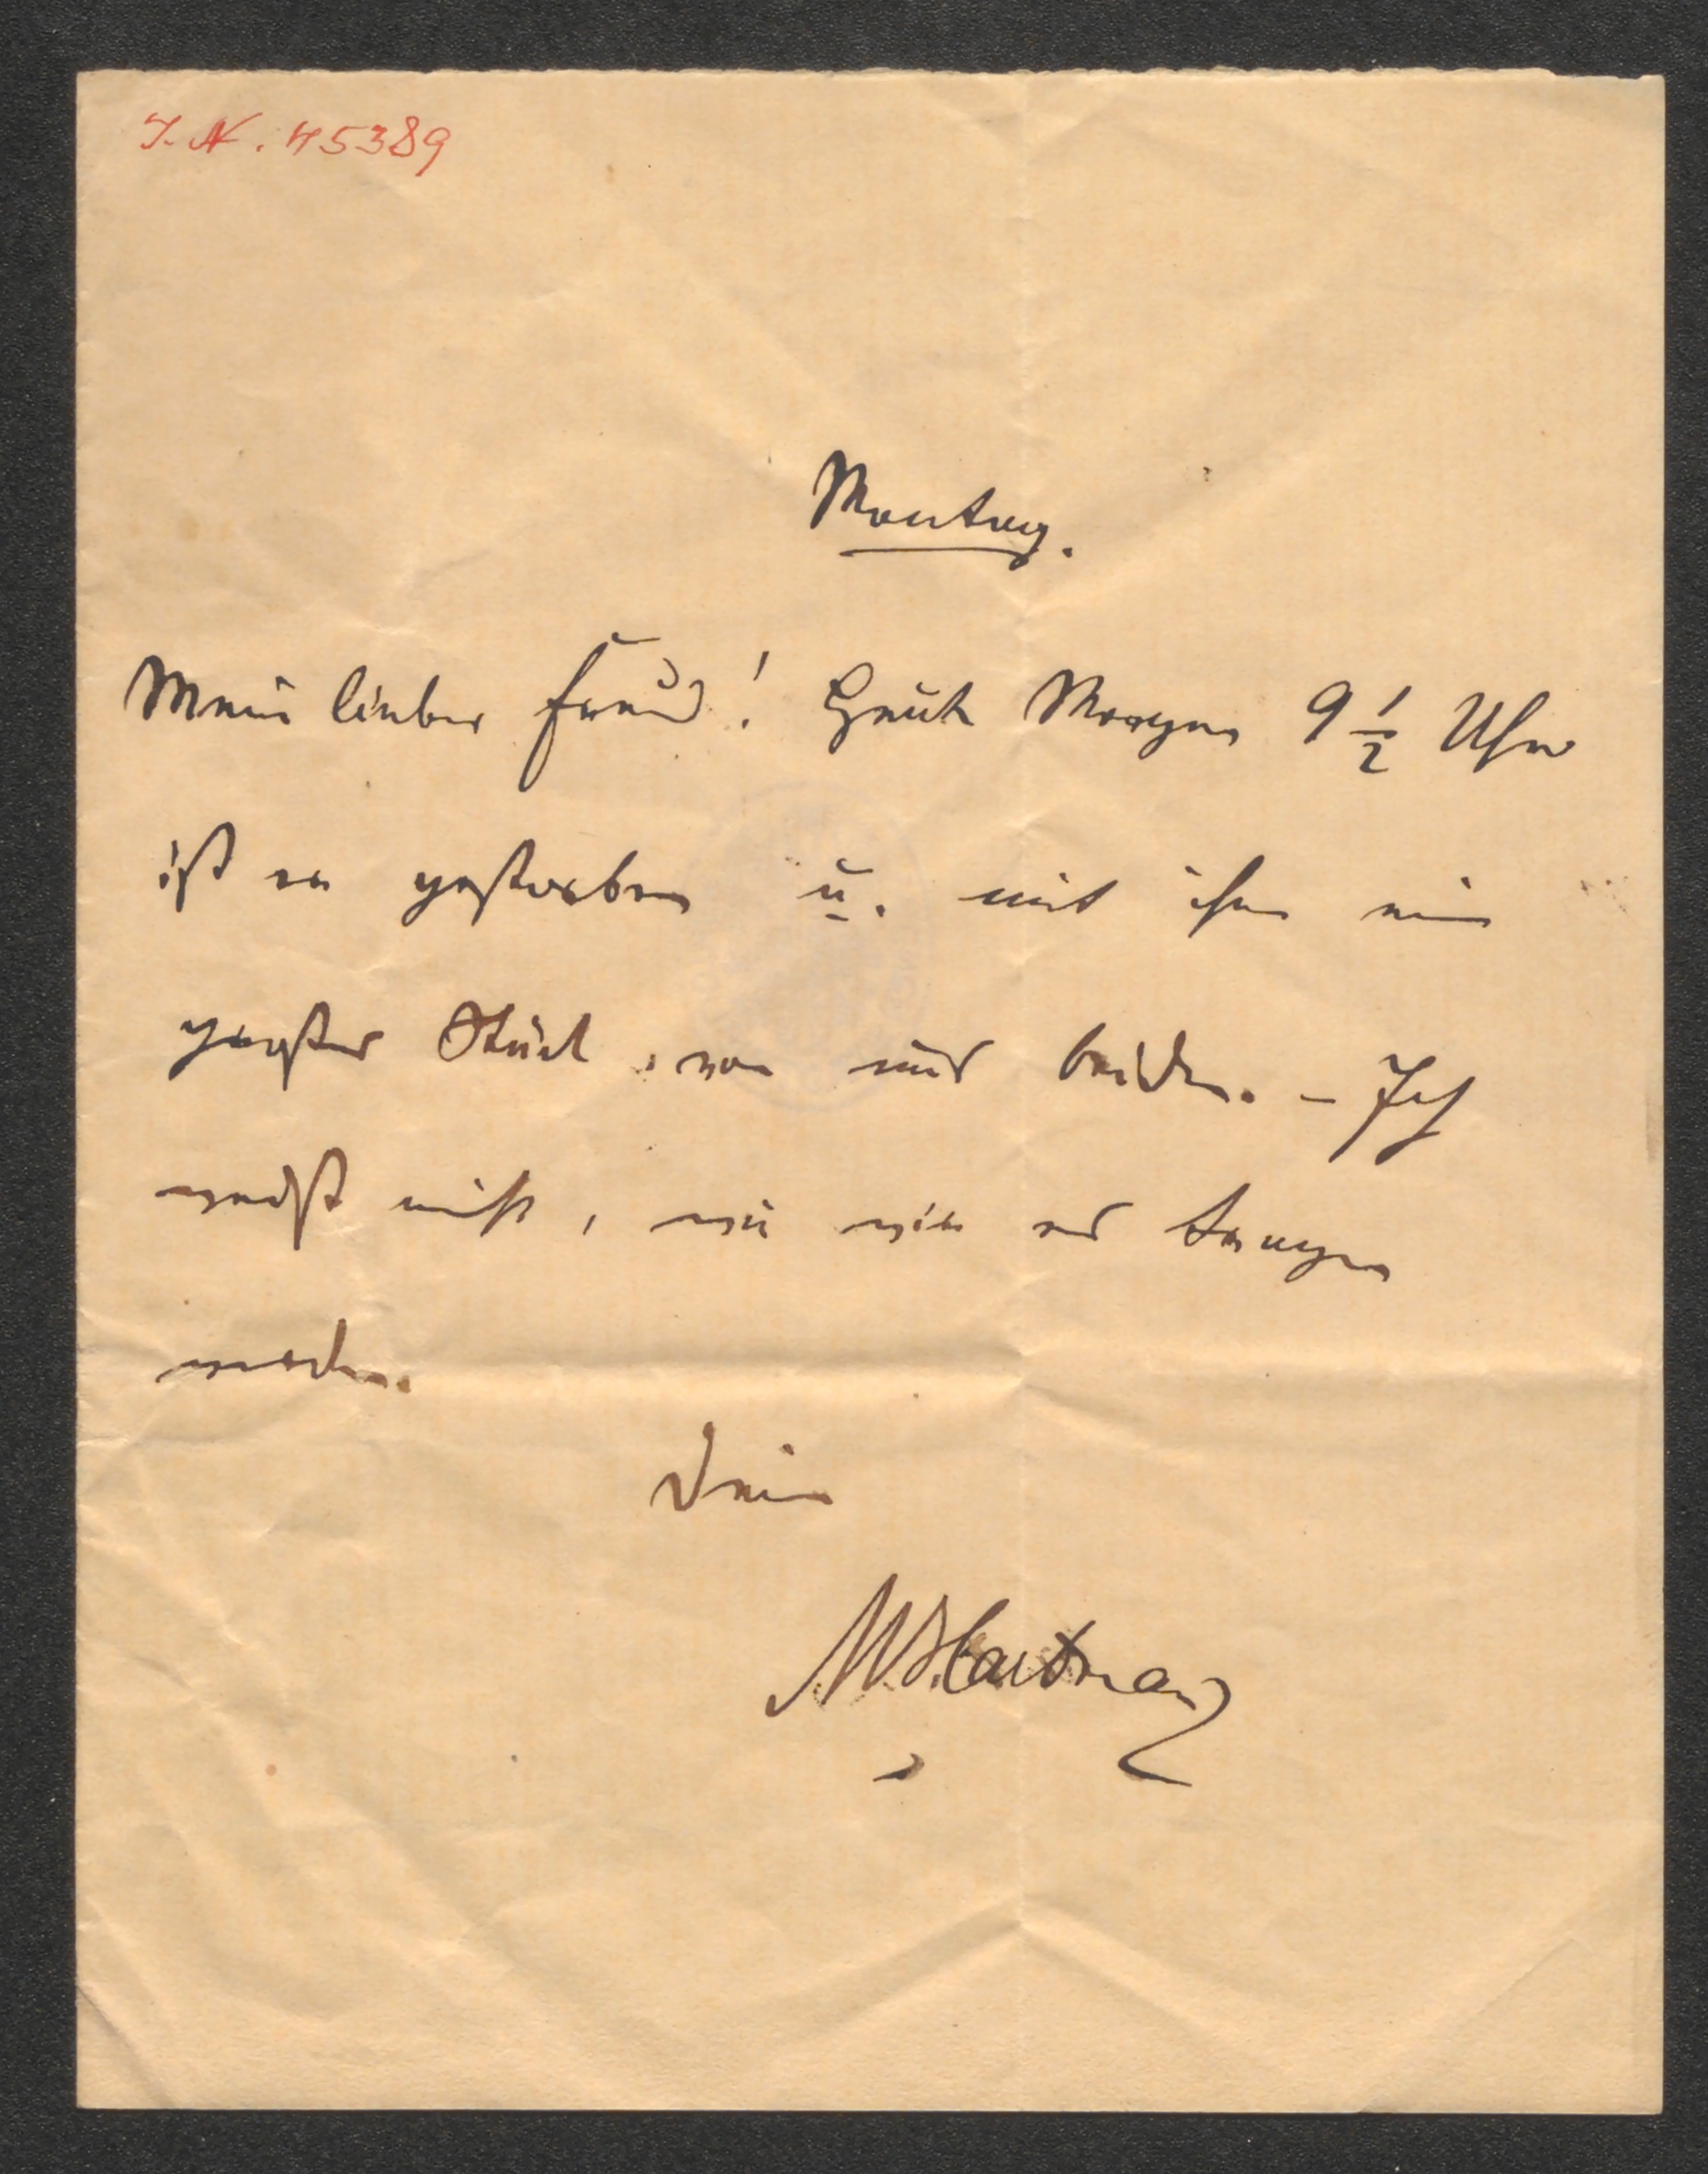 I. N. 45389
Montag.
Mein lieber Freund! Heute Morgen 9 1/2 Uhr
ist er gestorben u. mit ihm ein
großes Stück von uns beiden. – Ich
weiß nicht, wie wir es tragen
werden.
Dein
M. Hartmann